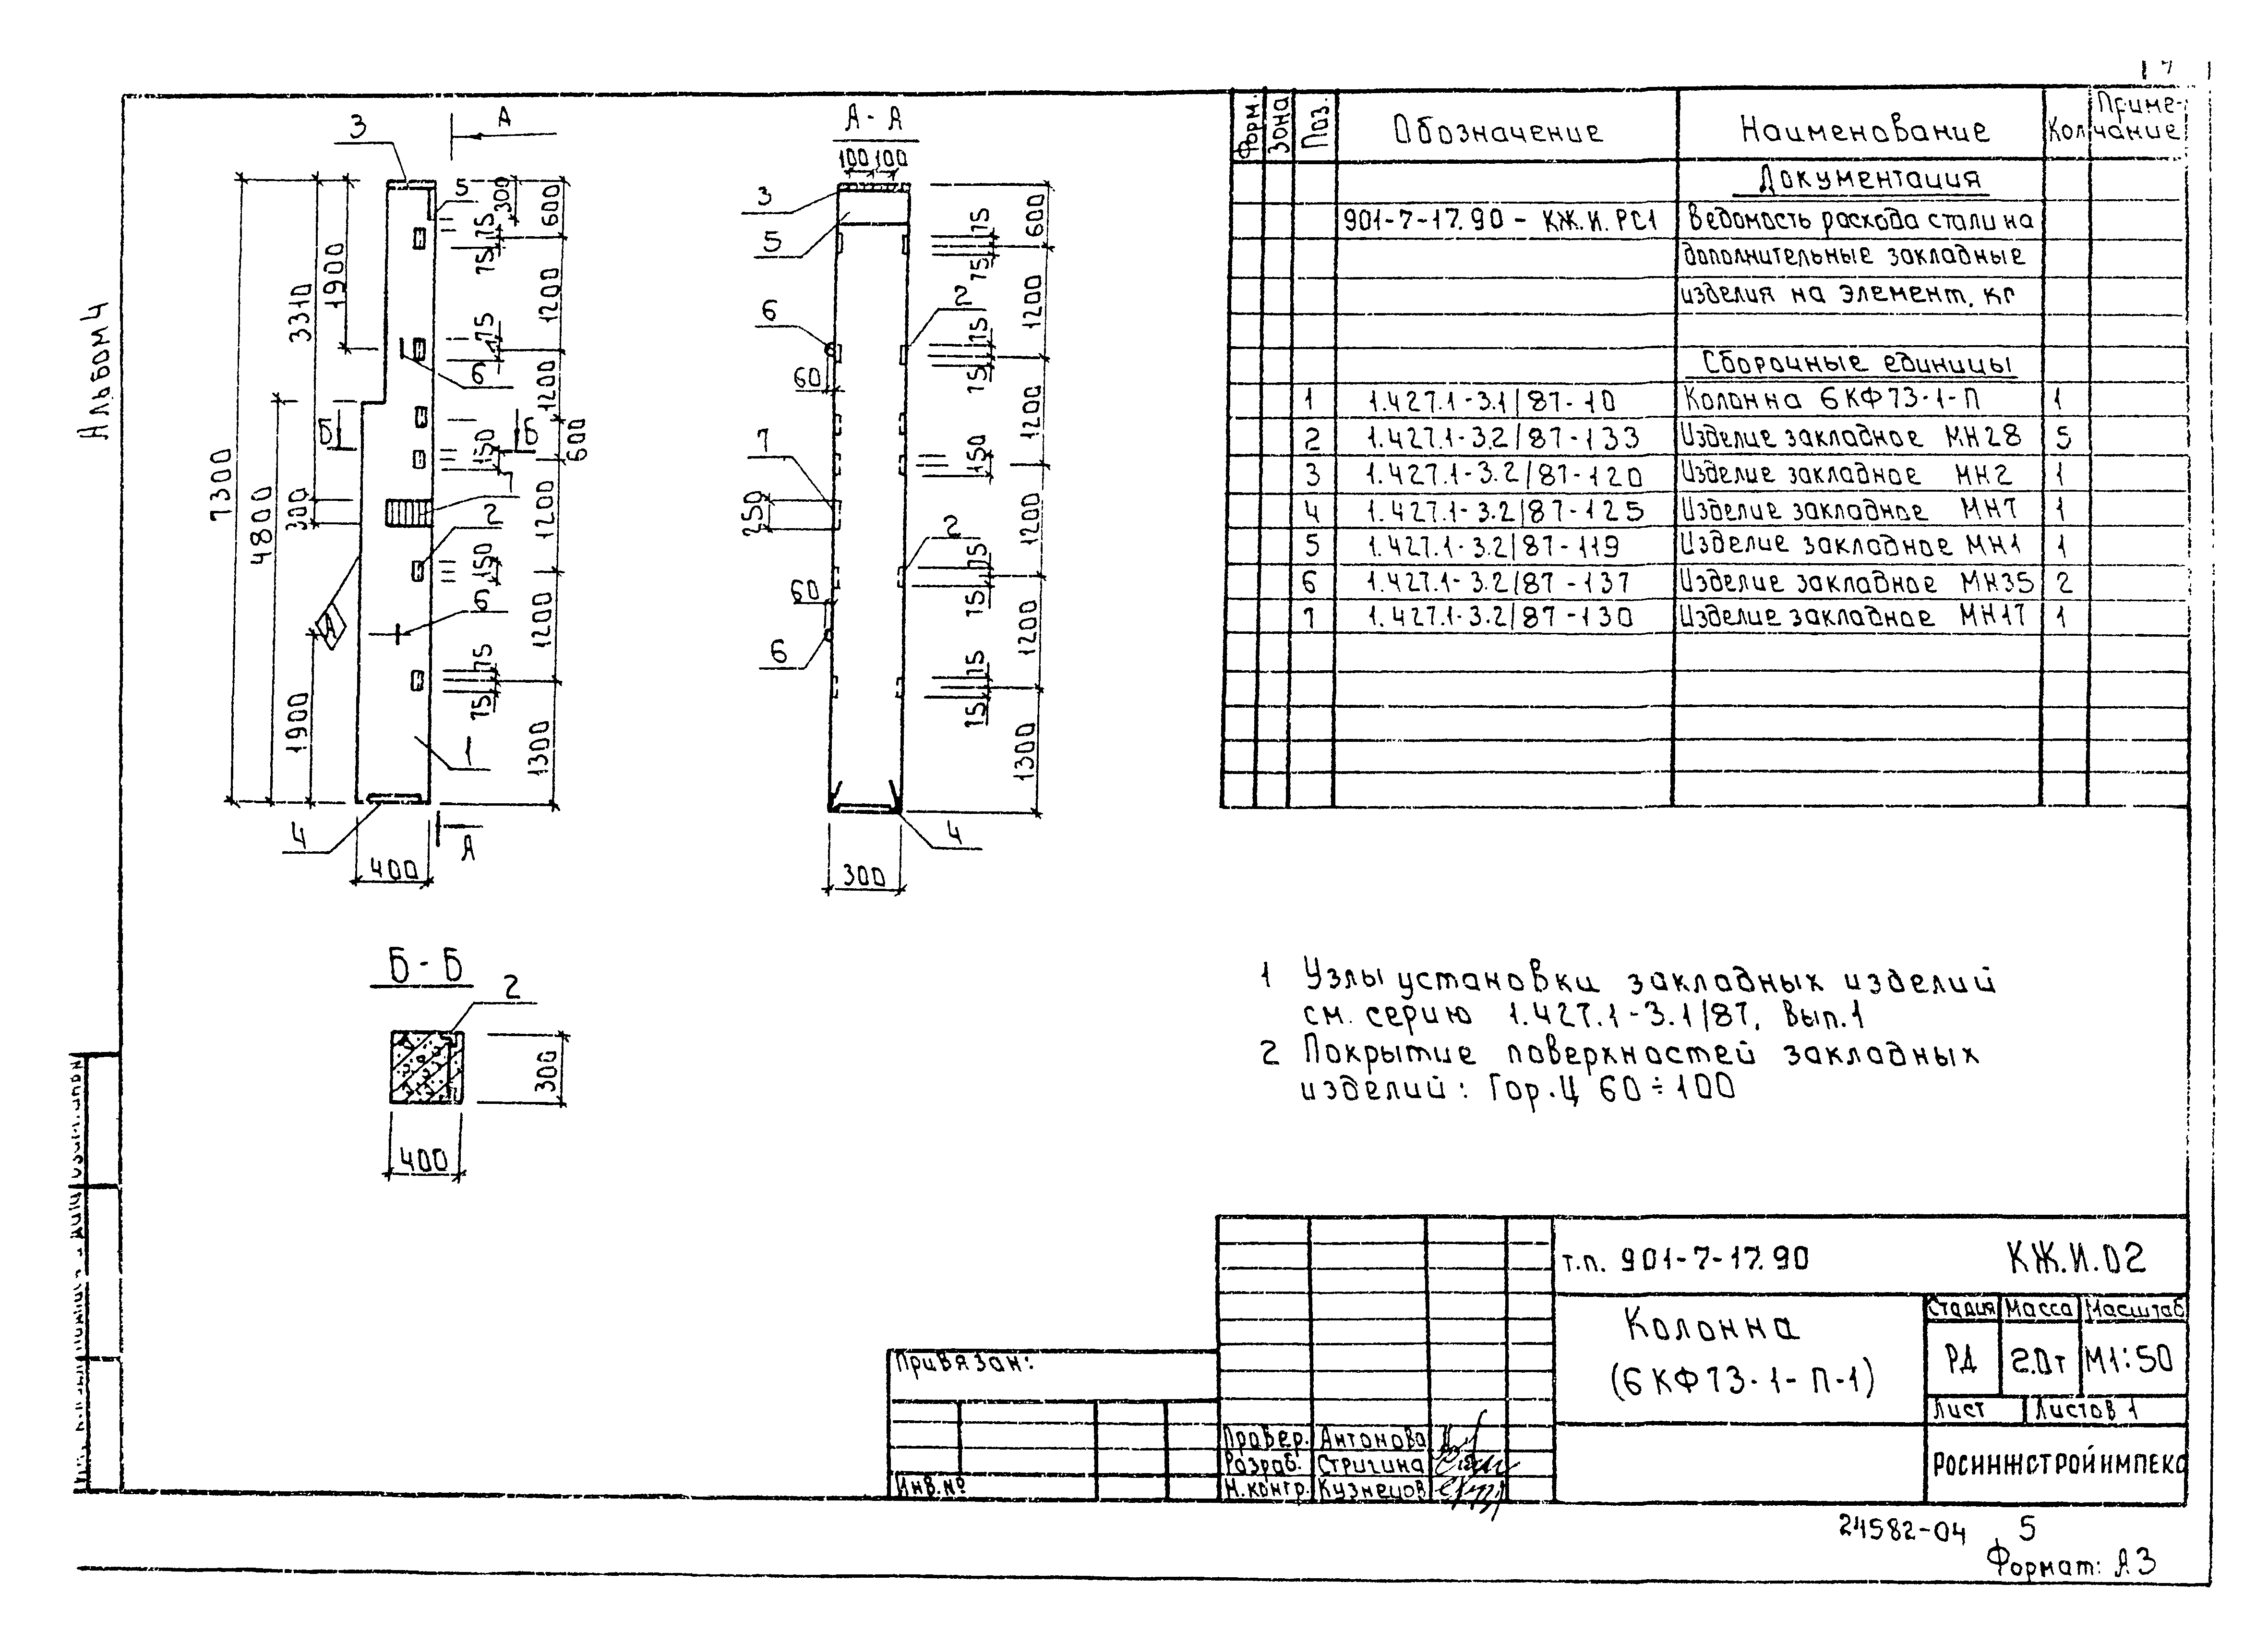 Альбом 4
А
3
5
300
600
75
75
1900
3310
1200
75
6
1200
Б
Б
150
600
7300
4800
300
7
2
1200
150
А
6
1200
1900
75
75
1
1300
4
А
400
А - А
100 100
3
5
75
75
600
6
2
60
75
75
1200
1200
7
150
250
2
1200
75
75
60
6
1200
75
75
1300
4
300
Б - Б
2
300
400
Форм. Зона Поз. Обозначение Наименование Кол Приме-
чание
Документация
901-7-17.90 - КЖ.И.РС1 Ведомость расхода стали на
дополнительные закладные
изделия на элемент, кг
Сборочные единицы
1 1.427.1-3.1/87-10 Колонна 6КФ73-1-П 1
2 1.427.1-3.2/87-133 Изделие закладное МН28 5
3 1.427.1-3.2/87-120 Изделие закладное МН2 1
4 1.427.1-3.2/87-125 Изделие закладное МН7 1
5 1.427.1-3.2/87-119 Изделие закладное МН1 1
6 1.427.1-3.2/87-137 Изделие закладное МН35 2
7 1.427.1-3.2/87-130 Изделие закладное МН17 1
1 Узлы установки закладных изделий
см. серию 1.427.1-3.1/87, Вып.1
2 Покрытие поверхностей закладных
изделий: Гор.Ц 60÷100
т.п. 901-7-17.90 КЖ.И.02
Колонна
(6КФ73-1-П-1)
Стадия Масса Масштаб
РД 2.0т М1:50
Лист Листов 1
РОСИНЖСТРОЙИМПЕКС
Привязан:
Инв.№
Провер. Антонова
Разраб. Стригина
Н.контр. Кузнецов
24582-04 5
Формат: А3